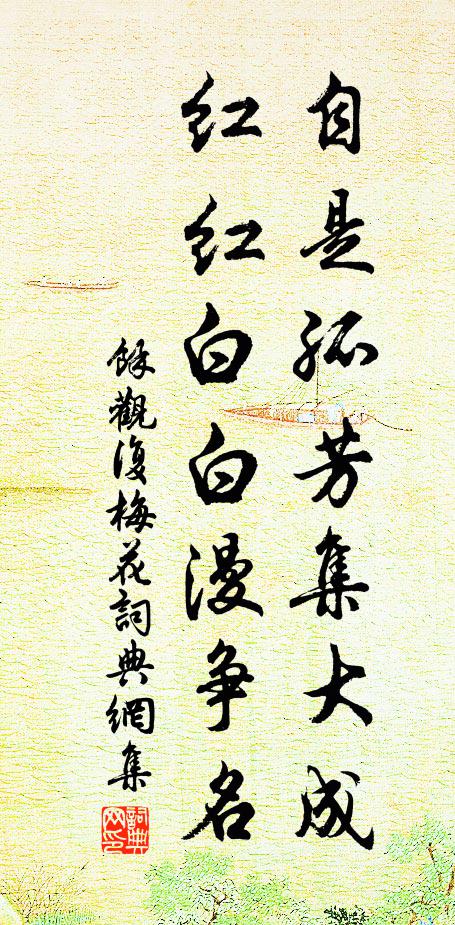 自是孤芳集大成
红红白白漫争名
餘觀復梅花詞典網集
詞典
网印